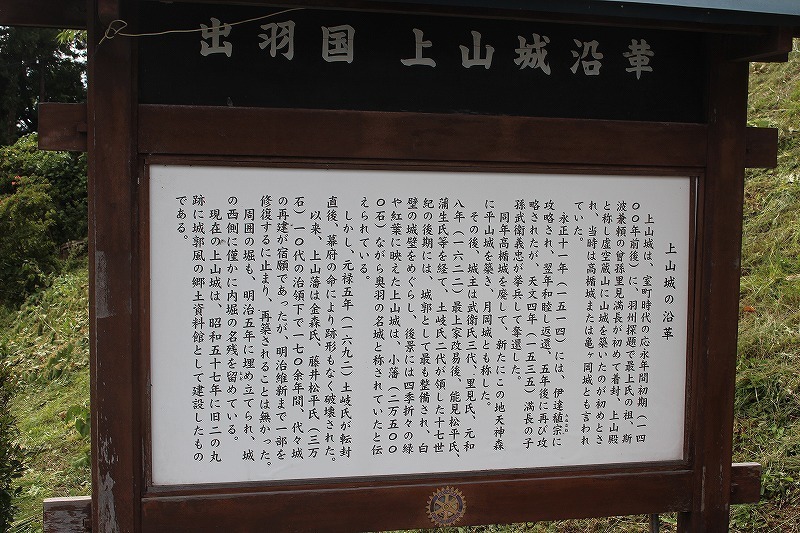 出羽国 上山城沿革
上山城の沿革
上山城は、室町時代の応永年間初期（一四
〇〇年前後）に、羽州探題で最上氏の祖、斯
波兼頼の曽孫里見満長が初めて着封、上山殿
と称し虚空蔵山に山城を築いたのが初めとさ
れ、当時は高楯城または亀ヶ岡城とも言われ
ていた。
永正十一年（一五一四）には、伊達稙宗に
攻略され、翌年和睦し返還、五年後に再び攻
略されたが、天文四年（一五三五）満長の子
孫武衛義忠が挙兵して奪還した。
同年高楯城を廃して、新たにこの地天神森
に平山城を築き、月岡城とも称した。
その後、城主は武衛氏三代、里見氏、元和
八年（一六二二）最上家改易後、能見松平氏、
蒲生氏等を経て、土岐氏二代が領した十七世
紀の後期には、城郭として最も整備され、白
壁の城壁をめぐらし、後景には四季折々の緑
や紅葉に映えた上山城は、小藩（二万五〇〇
〇石）ながら奥羽の名城と称されていたと伝
えられている。
しかし、元禄五年（一六九二）土岐氏が転封
直後、幕府の命により跡形もなく破壊された。
以来、上山藩は金森氏、藤井松平氏（三万
石）一〇代の治領下で一七〇余年間、代々城
の再建が宿願であったが、明治維新まで一部を
修復するに止まり、再築されることは無かった。
周囲の堀も、明治五年に埋め立てられ、城
の西側に僅かに内堀の名残を留めている。
現在の上山城は、昭和五十七年に旧二の丸
跡に城郭風の郷土資料館として建設したもの
である。